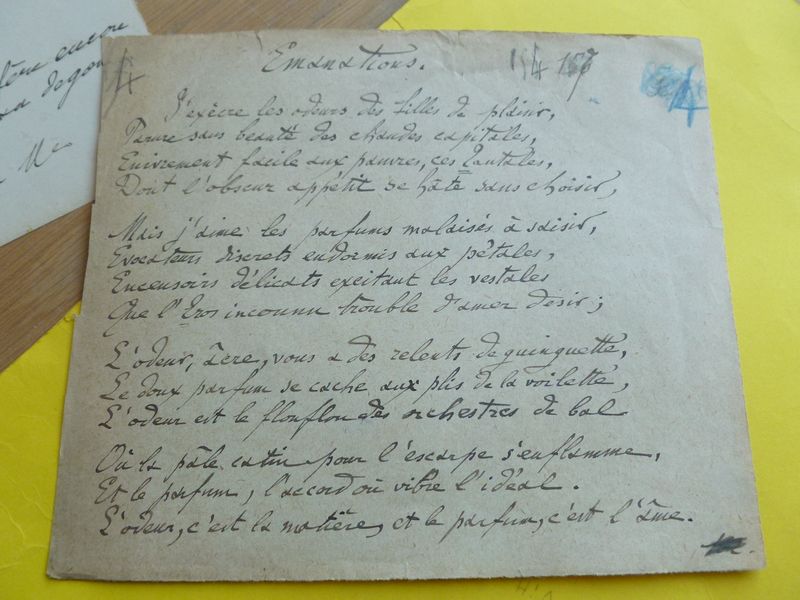 Emanations.
4
154 157
4
J'exècre les odeurs des filles de plaisir,
Parure sans beauté des chaudes capitales,
Enivrement facile aux pauvres, ces Tantales,
Dont l'obscur appétit se hâte sans choisir,
Mais j'aime les parfums malaisés à saisir,
Evocateurs discrets endormis aux pétales,
Encensoirs délicats excitant les vestales
Que l'Eros inconnu trouble d'amer désir ;
L'odeur, âcre, vous a des relents de guinguette,
Le doux parfum se cache aux plis de la voilette,
L'odeur est le flonflon des orchestres de bal
Où la pâle catin pour l'escarpe s'enflamme,
Et le parfum, l'accord où vibre l'idéal.
L'odeur, c'est la matière, et le parfum, c'est l'âme.
encore